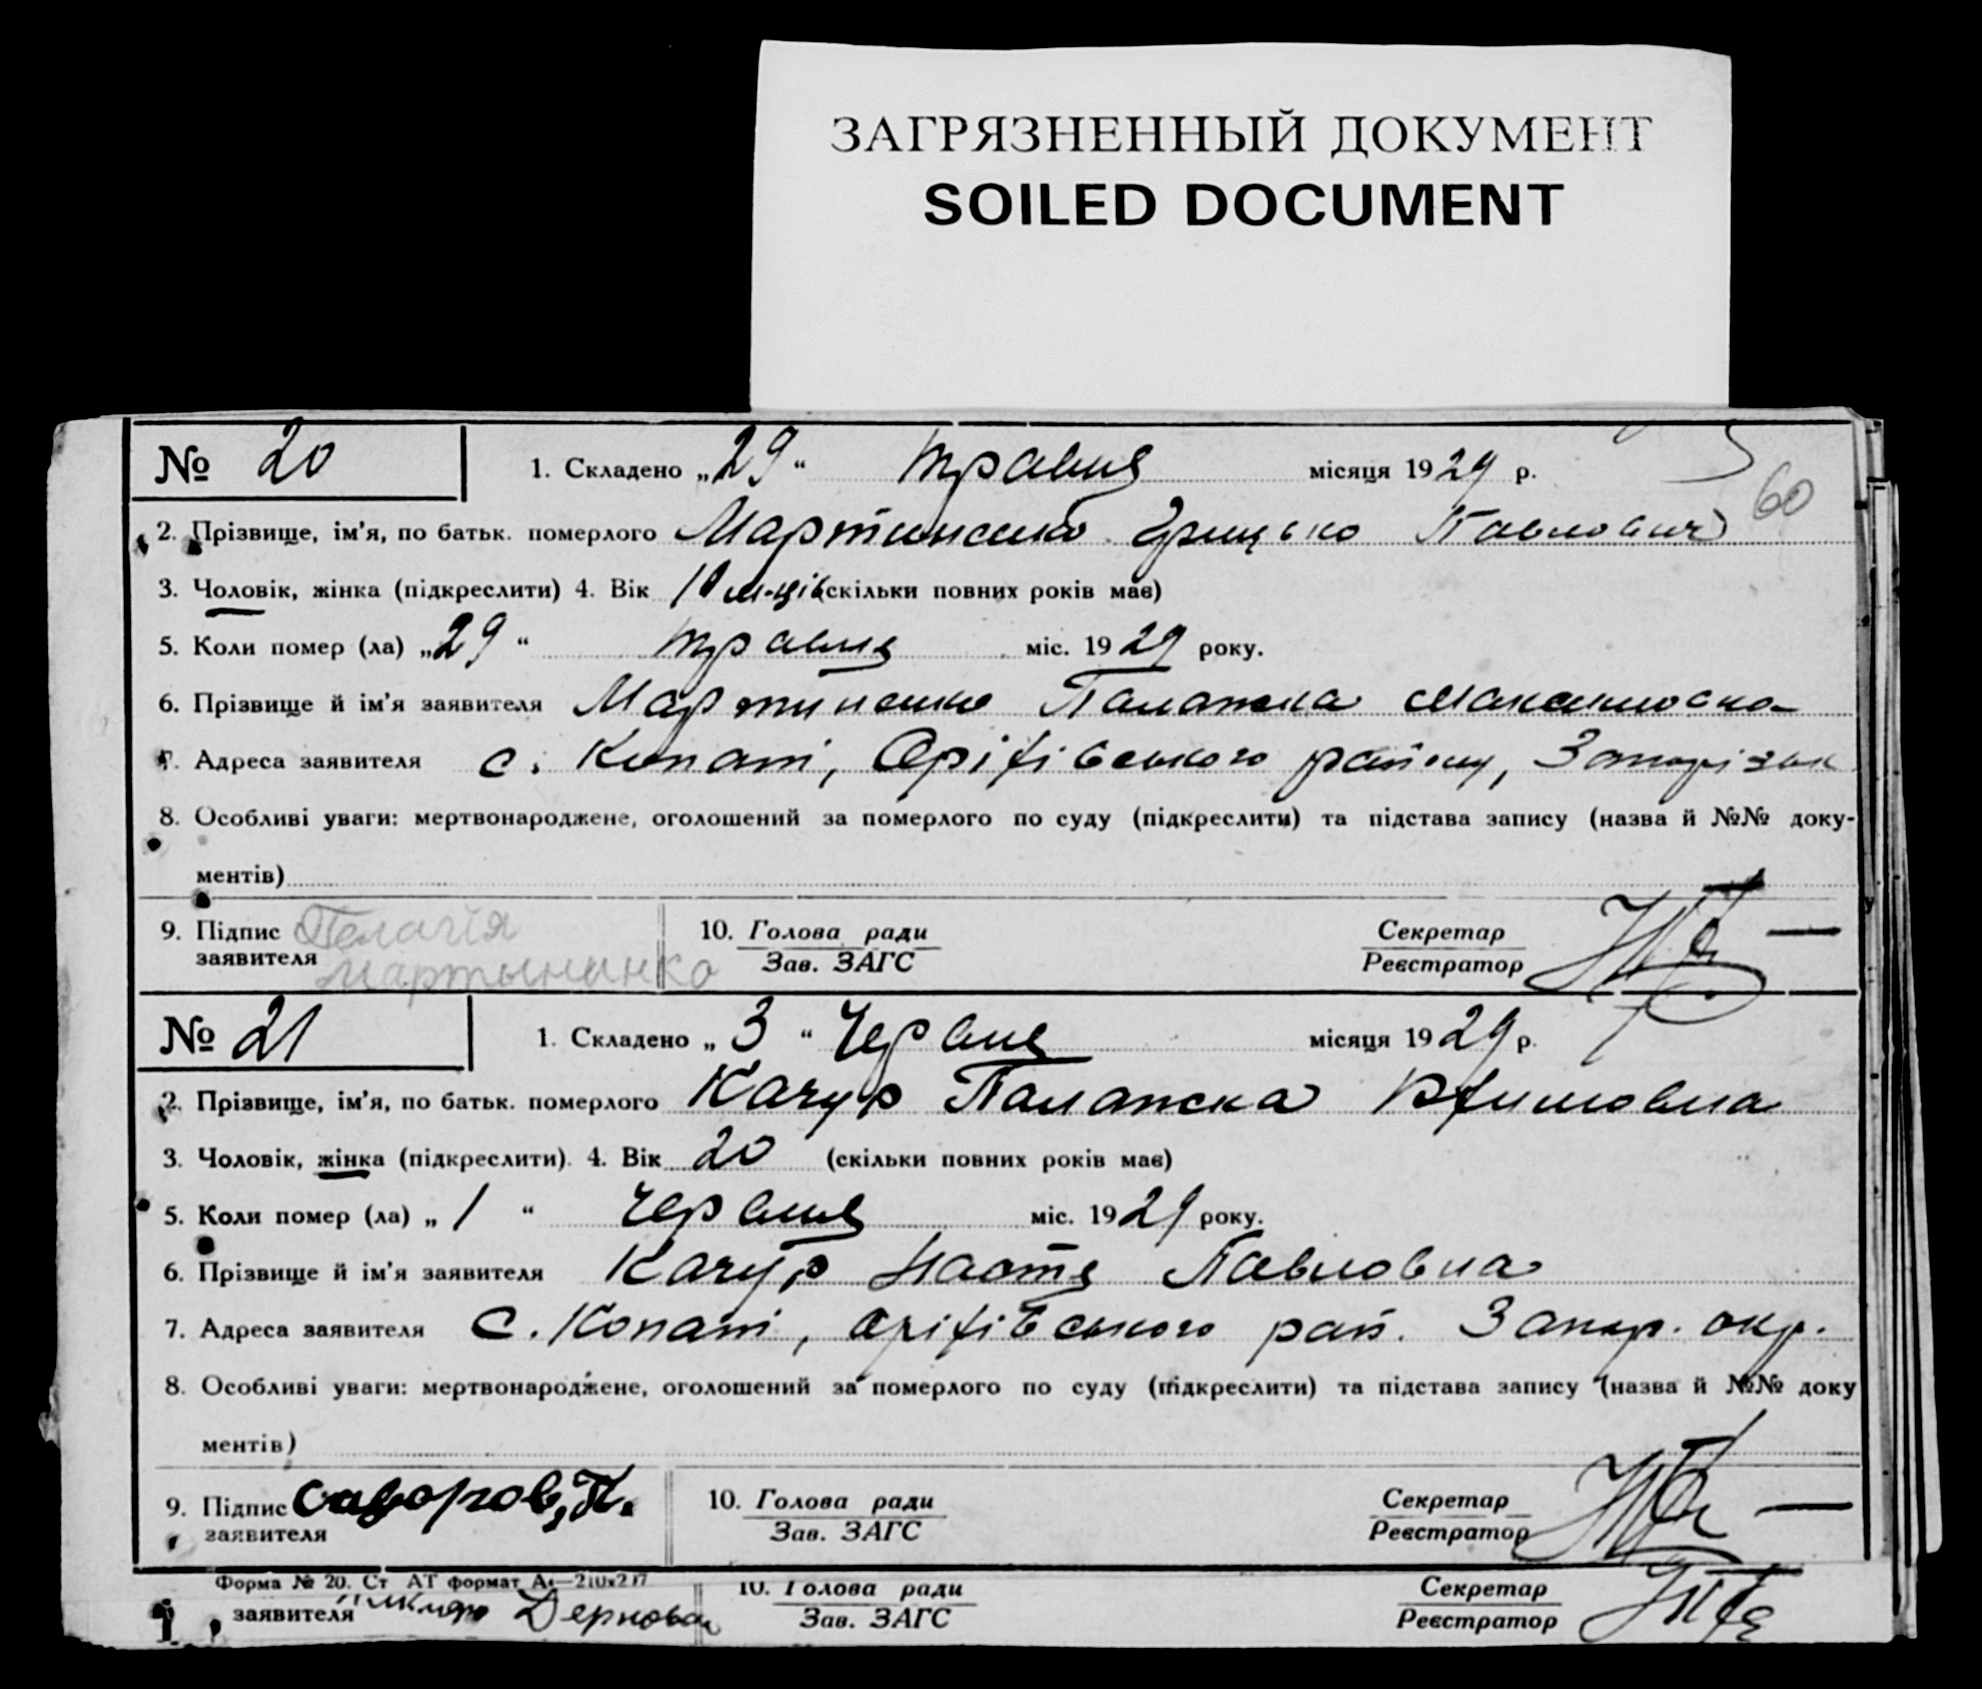 ЗАГРЯЗНЕННЫЙ ДОКУМЕНТ
SOILED DOCUMENT
№ 20 1. Складено „29“ травня місяця 1929 р.
60
2. Прізвище, ім'я, по батьк. померлого Мартиненко Грицько Павлович
3. Чоловік, жінка (підкреслити) 4. Вік 10 м-ців (скільки повних років має)
5. Коли помер (ла) „29“ травня міс. 1929 року.
6. Прізвище й ім'я заявителя Мартиненко Палажка Максимовна
7. Адреса заявителя с. Копані, Оріхівського району, Запорізьк
8. Особливі уваги: мертвонароджене, оголошений за померлого по суду (підкреслити) та підстава запису (назва й №№ доку-
ментів)
9. Підпис Пелагія 10. Голова ради Секретар
заявителя Мартынинко Зав. ЗАГС Реєстратор
№ 21 1. Складено „3“ Червня місяця 1929 р.
2. Прізвище, ім'я, по батьк. померлого Качур Палажка
3. Чоловік, жінка (підкреслити). 4. Вік 20 (скільки повних років має)
5. Коли помер (ла) „1“ червня міс. 1929 року.
6. Прізвище й ім'я заявителя Качур Настя Павловна
7. Адреса заявителя с. Копані, Оріхівського рай. Запор. окр.
8. Особливі уваги: мертвонароджене, оголошений за померлого по суду (підкреслити) та підстава запису (назва й №№ доку
ментів)
9. Підпис 10. Голова ради Секретар
заявителя Зав. ЗАГС Реєстратор
Форма № 20. Ст АТ формат А4—210х297 10. Голова ради Секретар
заявителя Зав. ЗАГС Реєстратор